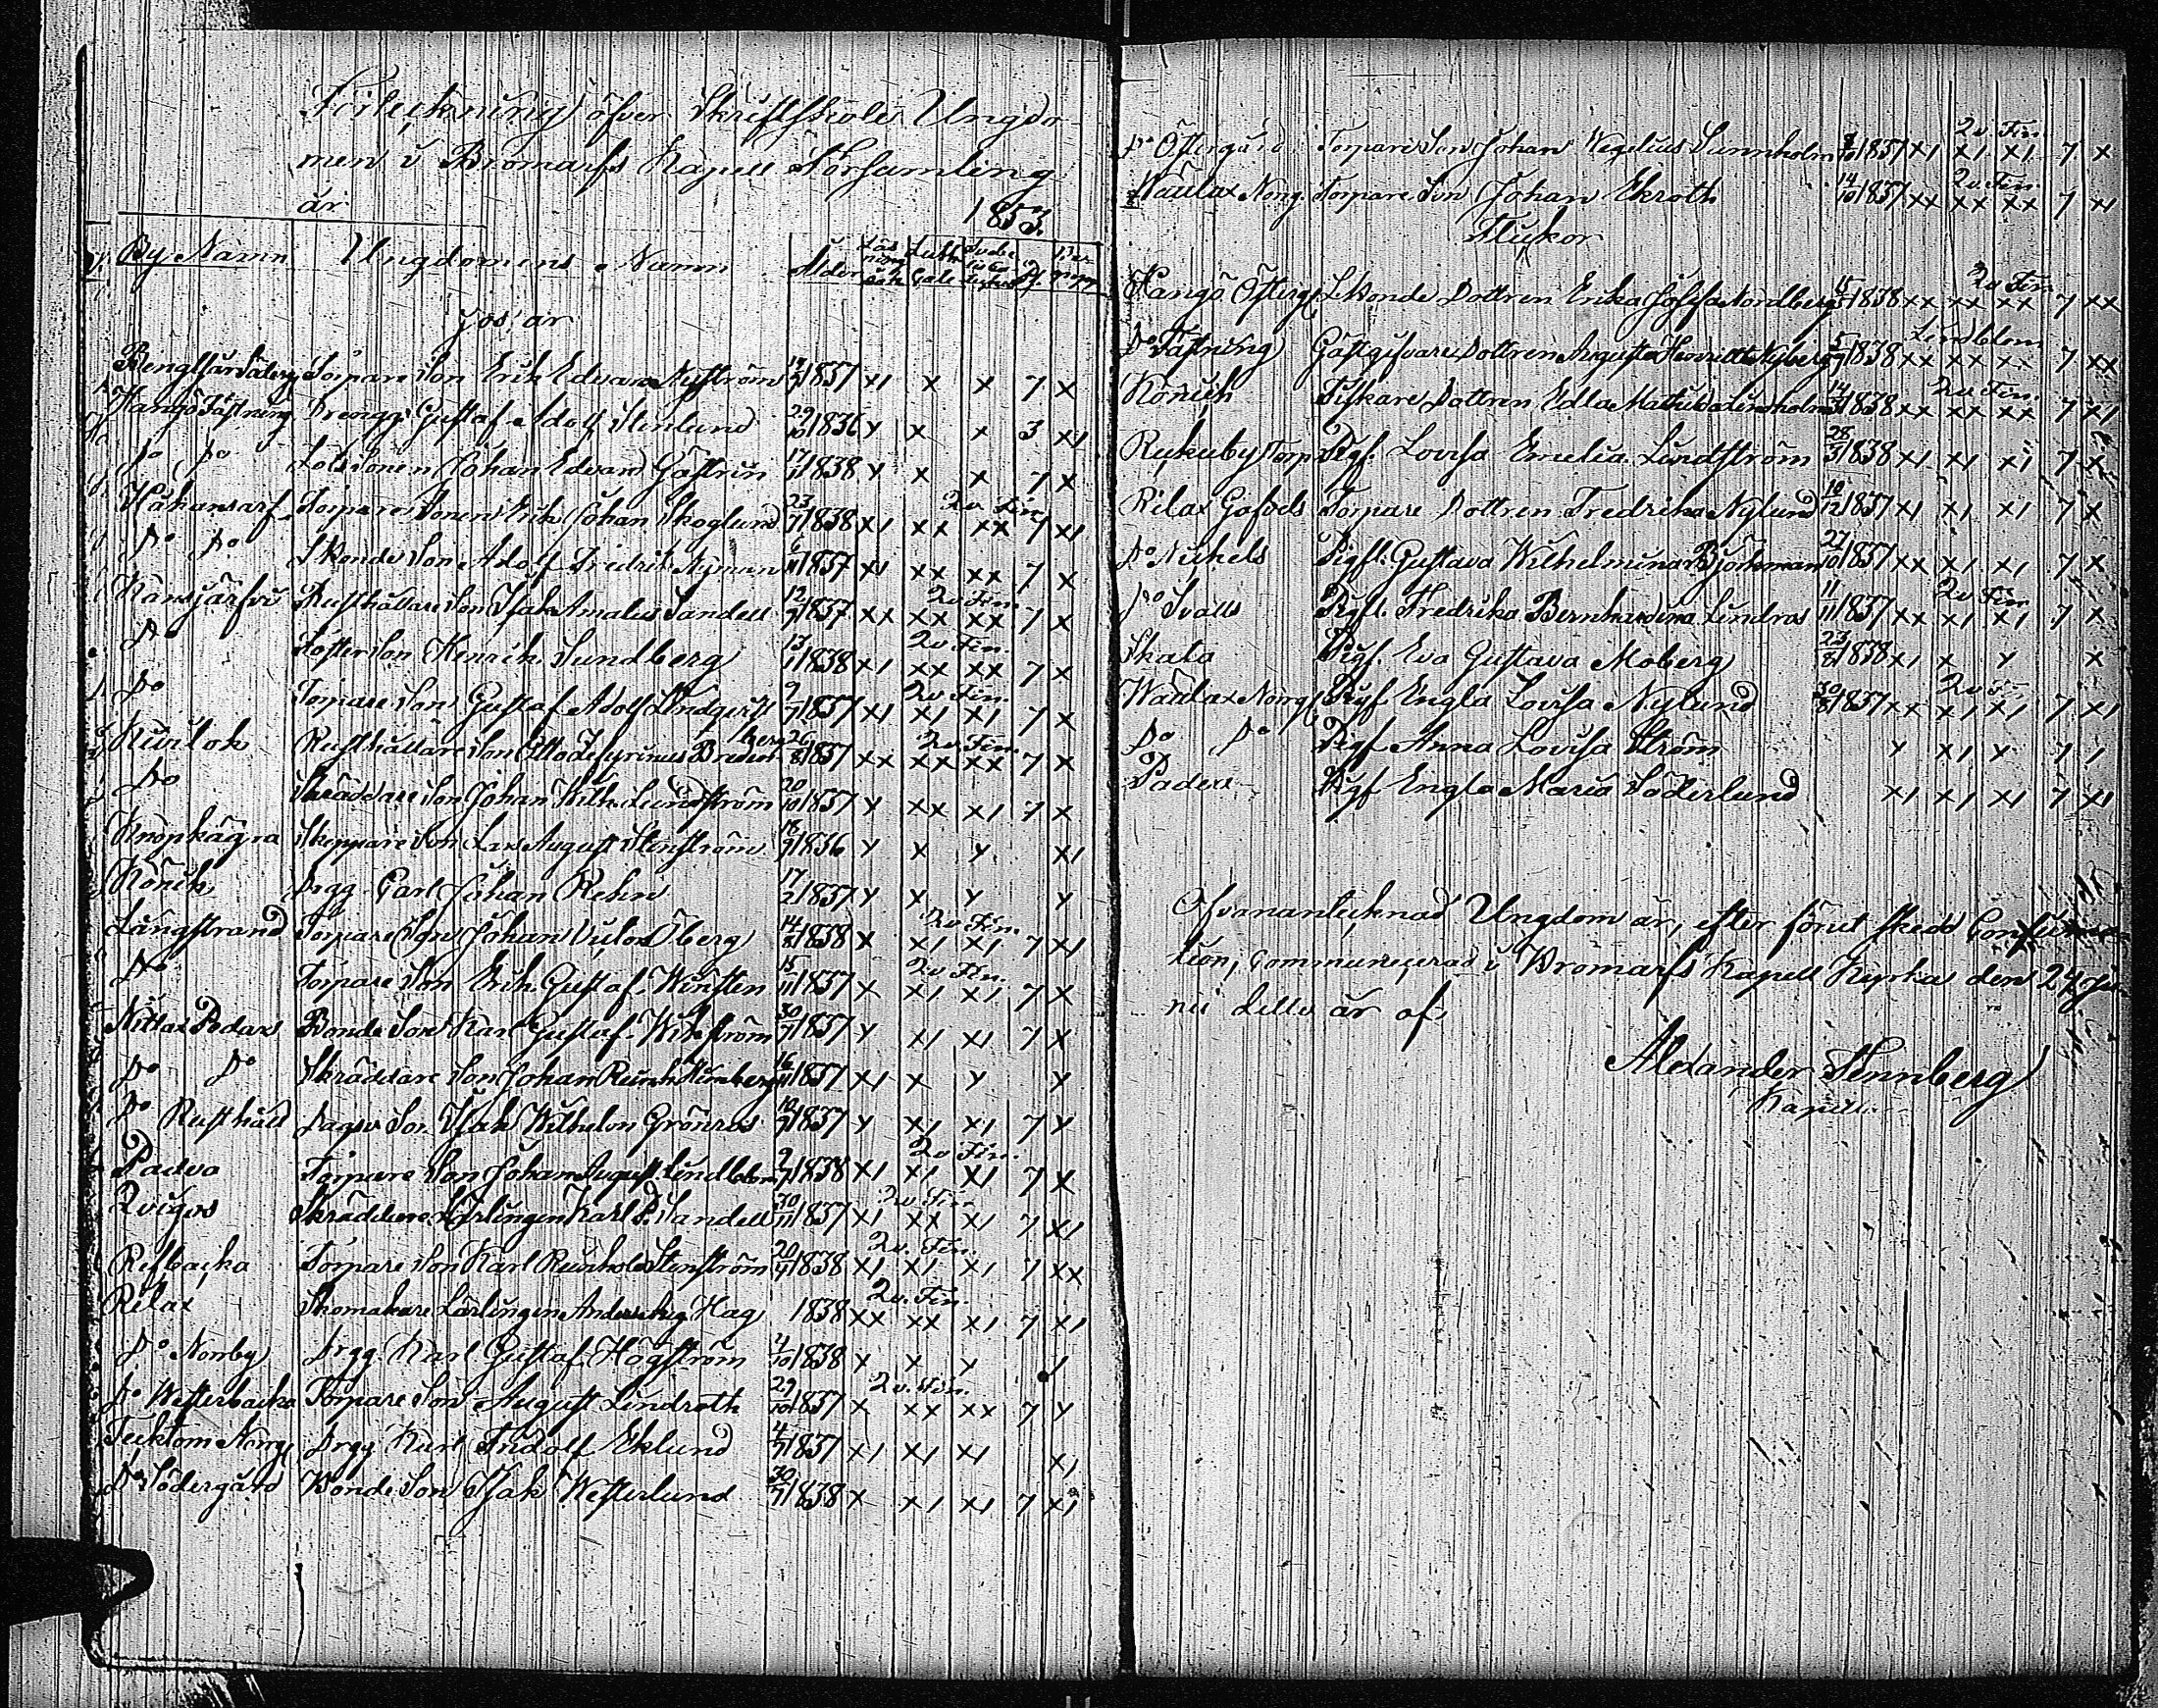 Förteckning öfver Skriftskole Ungdo
men i Bromarfs Kapell Församling
år 1853.
By Namn Ungdomens Namn Ålder
Gossar
Bengtsår Torpare Son Erik Edvard Nyström 1837 x1 x x 7 x
Hangö Fästning Drengen Gustaf Adolf Stenlund 29/10 1836 x x x 3 x1
Do Do Lots Sonen Johan Edvard Gästrin 17/11 1838 x x x 7 x
2 v. Fin.
Håkansarf Torpare Sonen Erik Johan Skoglund 23/7 1838 x1 xx xx 7 x1
Do Do Skonde Son Adolf Fredrik Nyman 6/11 1837 x1 xx xx 7 x
2 v. Fin.
Känsjärfvi Rusthållare Son Isak Amalius Sandell 12/9 1837 xx xx xx 7 x
2 v. Fin.
Do Foster Son Henrik Sundberg 13/1 1838 x1 xx xx 7 x
2 v. Fin.
Do Torpare Son Gustaf Adolf Lindqvist 9/7 1837 x1 x1 x1 7 x
2 v. Fin.
Kivilok Rusthållare Son Otto Zefyrinus Bredenberg 26/8 1837 xx xx xx 7 x
Do Skräddare Son Johan Wilh. Lundström 20/10 1837 x xx x1 7 x
Knopkägra Skeppare Son Lars August Stenström 18/9 1836 x x x x1
Könik Drgg. Carl Johan Rehn 17/2 1837 x x x x
2 v. Fin.
Långstrand Torpare Son Johan Viktor Öberg 14/8 1838 x x1 x1 7 x1
2 v. Fin.
Do Torpare Son Erik Gustaf Winsten 15/11 1837 x x1 x1 7 x
Nitlax Pedars Bonde Son Karl Gustaf Wikström 30/7 1837 x x1 x1 7 x
Do Do Skräddare Son Johan Reinh. 16/11 1837 x1 x x x
Do Rusthåld Dagsv. Son Isak Wilhelm Grönroos 10/9 1837 x x1 x1 7 x
2 v. Fin.
Padva Torpare Son Johan August Lindblom 9/7 1838 x1 x1 x1 7 x
2 v. Fin.
Qvigos Skräddare Lärlingen Karl F. Sandell 30/11 1837 x1 xx x1 7 x1
2 v. Fin.
Refbacka Torpare Son Karl Reinhold Stenström 20/7 1838 x1 x1 x1 7 xx
2 v. Fin.
Rilax Skomakare Lärlingen Anders Aug. Hag 1838 xx xx x1 7 x1
Do Norrby Drgg. Karl Gustaf Högström 4/10 1838 x x x 1
2 v. Fin.
Do Westerbacka Torpare Son August Lindroth 29/10 1837 x xx xx 7 x
Tecktom Norrg. Drgg. Karl Fridolf Eklund 4/7 1837 x1 x1 x1 x1
Do Södergård Bonde Son Isak Westerlund 30/7 1838 x x1 x1 7 x1
2 v. Fin.
Do Östergård Torpare Son Johan Wegelius Sunnholm 1837 x1 x1 x1 7 x
2 v. Fin.
Wättlax Norrg. Torpare Son Johan Ekroth 14/10 1837 xx xx xx 7 x1
Flickor
2 v. Fin.
Hangö Österg. Skonde Dottren Erika Josefa Nordberg 1838 xx xx xx 7 xx
Lindblom
Do Fästning Gästgifvare Dottren Augusta Henriette Nyberg 1838 xx xx xx 7 xx
2 v. Fin.
Könick Fiskare Dottren Edla Mathilda Lindholm 14/3 1838 xx xx xx 7 x1
Rukuby Torp Pigf. Lovisa Emelia Lundström 28/3 1838 x1 x1 x1 7 x
Rilax Gofvels Torpare Dottren Fredrika Nylund 10/12 1837 x1 x1 x1 7 x
Do Nickels Pigfl. Gustava Wilhelmina Björkman 27/10 1837 xx x1 x1 7 x
2 v. Fin.
Do Svalls Pigfl. Fredrika Bernhardina Lindros 11/11 1837 xx x1 x1 7 x
Skata Pigf. Eva Gustava Moberg 23/8 1838 x1 x x x
2 v. Fin.
Wättlax Norrg. Pigf. Engla Lovisa Nylund 30/8 1837 xx x1 x1 7 x1
Do Do Pigf. Anna Lovisa Ström x x1 x 7 1
Padva Pigf. Engla Maria Söderlund x1 x1 x1 7 x1
Ofvanantecknad Ungdom är, efter förut skedd Confirma
tion, communicerad i Bromarfs Kapell Kyrka den 24 Ju
nii detta år af
Alexander Stennberg
Kapell.